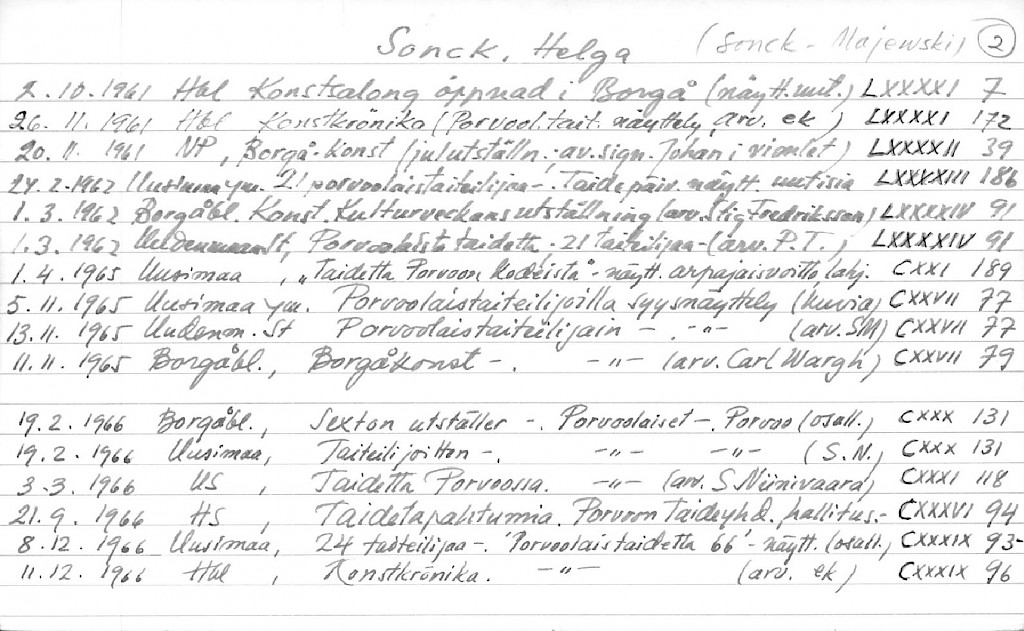 Sonck, Helga (Sonck - Majewski) 2
2.10.1961 Hbl Konstsalong öppnad i Borgå (näytt.uut.) LXXXXI 7
26.11.1961 Hbl Konstkrönika (Porvool.tait. näyttely, arv. ek) LXXXXI 172
20.11.1961 NP, Borgå-Konst (julutställn.; av.sign. Johan i vimlet) LXXXXII 39
24.2.1962 Uusimaa ym. 21 porvoolaistaiteilijaa-. Taidepäiv. näytt. uutisia LXXXXIII 186
1.3.1962 Borgåbl. Konst. Kulturveckans utställning (arv. Stig Fredriksson) LXXXXIV 91
1.3.1962 Uudenmaan St, Porvoolaista taidetta - 21 taiteilijaa-(arv. P.T.) LXXXXIV 91
1.4.1965 Uusimaa, „Taidetta Porvoon Kodeista"- näytt. arpajaisvoitto, lahj. CXXI 189
5.11.1965 Uusimaa ym. Porvoolaistaiteilijoilla syysnäyttely (kuvia) CXXVII 77
13.11.1965 Uudenm. St Porvoolaistaiteilijain - -"- (arv. SM) CXXVII 77
11.11.1965 Borgåbl., Borgåkonst -. -"- (arv. Carl Wargh) CXXVII 79
19.2.1966 Borgåbl., Sexton utställer -. Porvoolaiset -. Porvoo (osall.) CXXX 131
19.2.1966 Uusimaa, Taiteilijoitten -. -"- -"- (S.N.) CXXX 131
3.3.1966 US, Taidetta Porvoossa. -"- (arv. S. Niinivaara) CXXXI 118
21.9.1966 HS, Taidetapahtumia. Porvoon Taideyhd. hallitus.- CXXXVI 94
8.12.1966 Uusimaa, 24 taiteilijaa -. 'Porvoolaistaidetta 66'- näytt. (osall.) CXXXIX 93-
11.12.1966 Hbl, Konstkrönika. -"- (arv. ek) CXXXIX 96